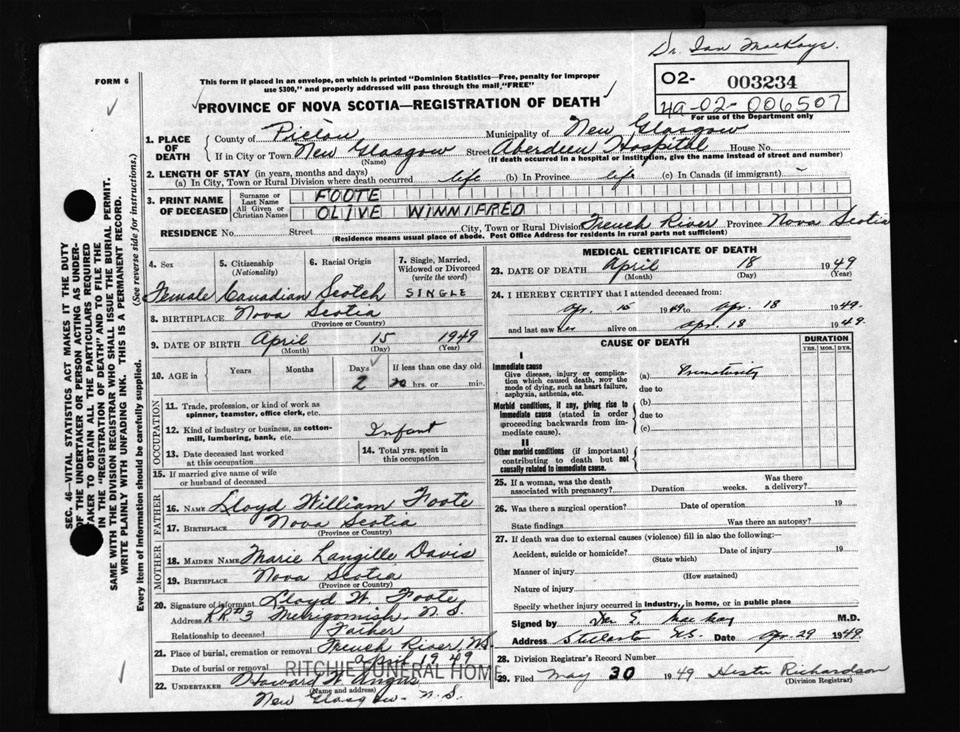 Dr. Ian MacKay.
FORM 6
This form if placed in an envelope, on which is printed "Dominion Statistics—Free, penalty for improper
use $300," and properly addressed will pass through the mail "FREE"
PROVINCE OF NOVA SCOTIA—REGISTRATION OF DEATH
02- 003234
49-02-006507
For use of the Department only
1. PLACE OF DEATH
County of Pictou Municipality of New Glasgow
If in City or Town New Glasgow (Name) Street Aberdeen Hospital House No.
(If death occurred in a hospital or institution, give the name instead of street and number)
2. LENGTH OF STAY (in years, months and days)
(a) In City, Town or Rural Division where death occurred life (b) In Province life (c) In Canada (if immigrant) -
3. PRINT NAME OF DECEASED
Surname or Last Name FOOTE
All Given or Christian Names OLIVE WINNIFRED
RESIDENCE No. Street City, Town or Rural Division French River Province Nova Scotia
(Residence means usual place of abode. Post Office Address for residents in rural parts not sufficient)
4. Sex Female
5. Citizenship (Nationality) Canadian
6. Racial Origin Scotch
7. Single, Married, Widowed or Divorced (write the word) SINGLE
8. BIRTHPLACE Nova Scotia
(Province or Country)
9. DATE OF BIRTH April 15 1949
(Month) (Day) (Year)
10. AGE in Years Months Days 2 If less than one day old 20 hrs. or min.
OCCUPATION
11. Trade, profession, or kind of work as
spinner, teamster, office clerk, etc.
12. Kind of industry or business, as cotton-
mill, lumbering, bank, etc. Infant
13. Date deceased last worked
at this occupation
14. Total yrs. spent in
this occupation
15. If married give name of wife
or husband of deceased
FATHER
16. NAME Lloyd William Foote
17. BIRTHPLACE Nova Scotia
(Province or Country)
MOTHER
18. MAIDEN NAME Marie Langille Davis
19. BIRTHPLACE Nova Scotia
(Province or Country)
20. Signature of informant Lloyd W. Foote
Address RR#3 Merigomish, N.S.
Relationship to deceased Father
21. Place of burial, cremation or removal French River, N.S.
Date of burial or removal April 19 49
RITCHIE FUNERAL HOME
22. UNDERTAKER Howard W. Angus
(Name and address)
New Glasgow N.S.
MEDICAL CERTIFICATE OF DEATH
23. DATE OF DEATH April 18 1949
(Month) (Day) (Year)
24. I HEREBY CERTIFY that I attended deceased from:
Apr. 15 1949 to Apr. 18 1949
and last saw her alive on Apr. 18 1949.
CAUSE OF DEATH
DURATION
YRS. MOS. DYS.
I
Immediate cause
Give disease, injury or complica-
tion which caused death, nor the
mode of dying, such as heart failure,
asphyxia, asthenia, etc.
(a) Prematurity
due to
Morbid conditions, if any, giving rise to
immediate cause (stated in order
proceeding backwards from im-
mediate cause).
(b)
due to
(c)
II
Other morbid conditions (if important)
contributing to death but not
causally related to immediate cause.
25. If a woman, was the death
associated with pregnancy? Duration weeks. Was there
a delivery?
26. Was there a surgical operation? Date of operation 19
State findings Was there an autopsy?
27. If death was due to external causes (violence) fill in also the following:—
Accident, suicide or homicide? Date of injury 19
(State which)
Manner of injury
(How sustained)
Nature of injury
Specify whether injury occurred in industry, in home, or in public place
Signed by M.D.
Address Stellarton N.S. Date Apr. 29 1949.
28. Division Registrar's Record Number
29. Filed May 30 1949 Hester Richardson
(Division Registrar)
SEC. 46—VITAL STATISTICS ACT MAKES IT THE DUTY
OF THE UNDERTAKER OR PERSON ACTING AS UNDER-
TAKER TO OBTAIN ALL THE PARTICULARS REQUIRED
IN THE "REGISTRATION OF DEATH" AND TO FILE THE
SAME WITH THE DIVISION REGISTRAR WHO SHALL ISSUE THE BURIAL PERMIT.
WRITE PLAINLY WITH UNFADING INK. THIS IS A PERMANENT RECORD.
Every item of information should be carefully supplied. (See reverse side for instructions.)